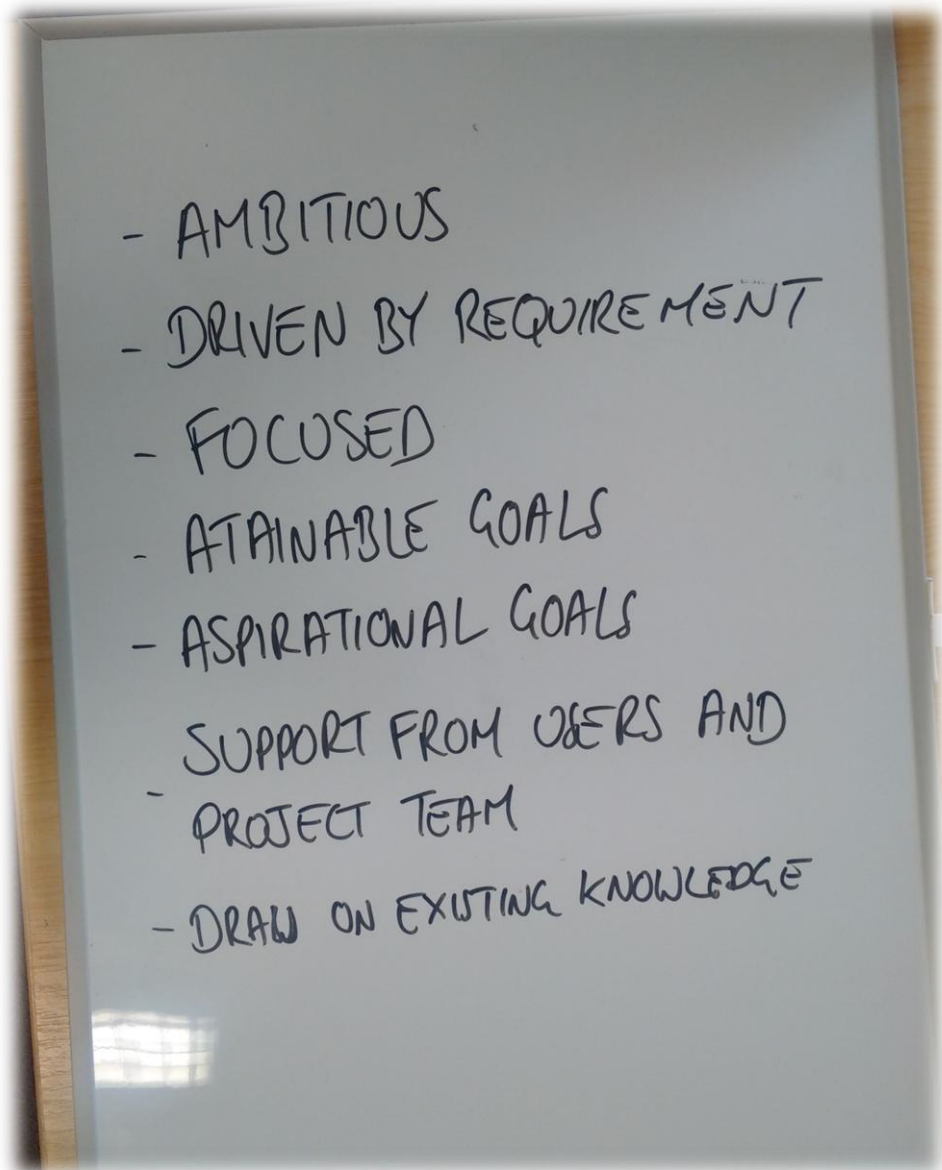 - AMBITIOUS
- DRIVEN BY REQUIREMENT
- FOCUSED
- ATAINABLE GOALS
- ASPIRATIONAL GOALS
- SUPPORT FROM USERS AND
PROJECT TEAM
- DRAW ON EXISTING KNOWLEDGE